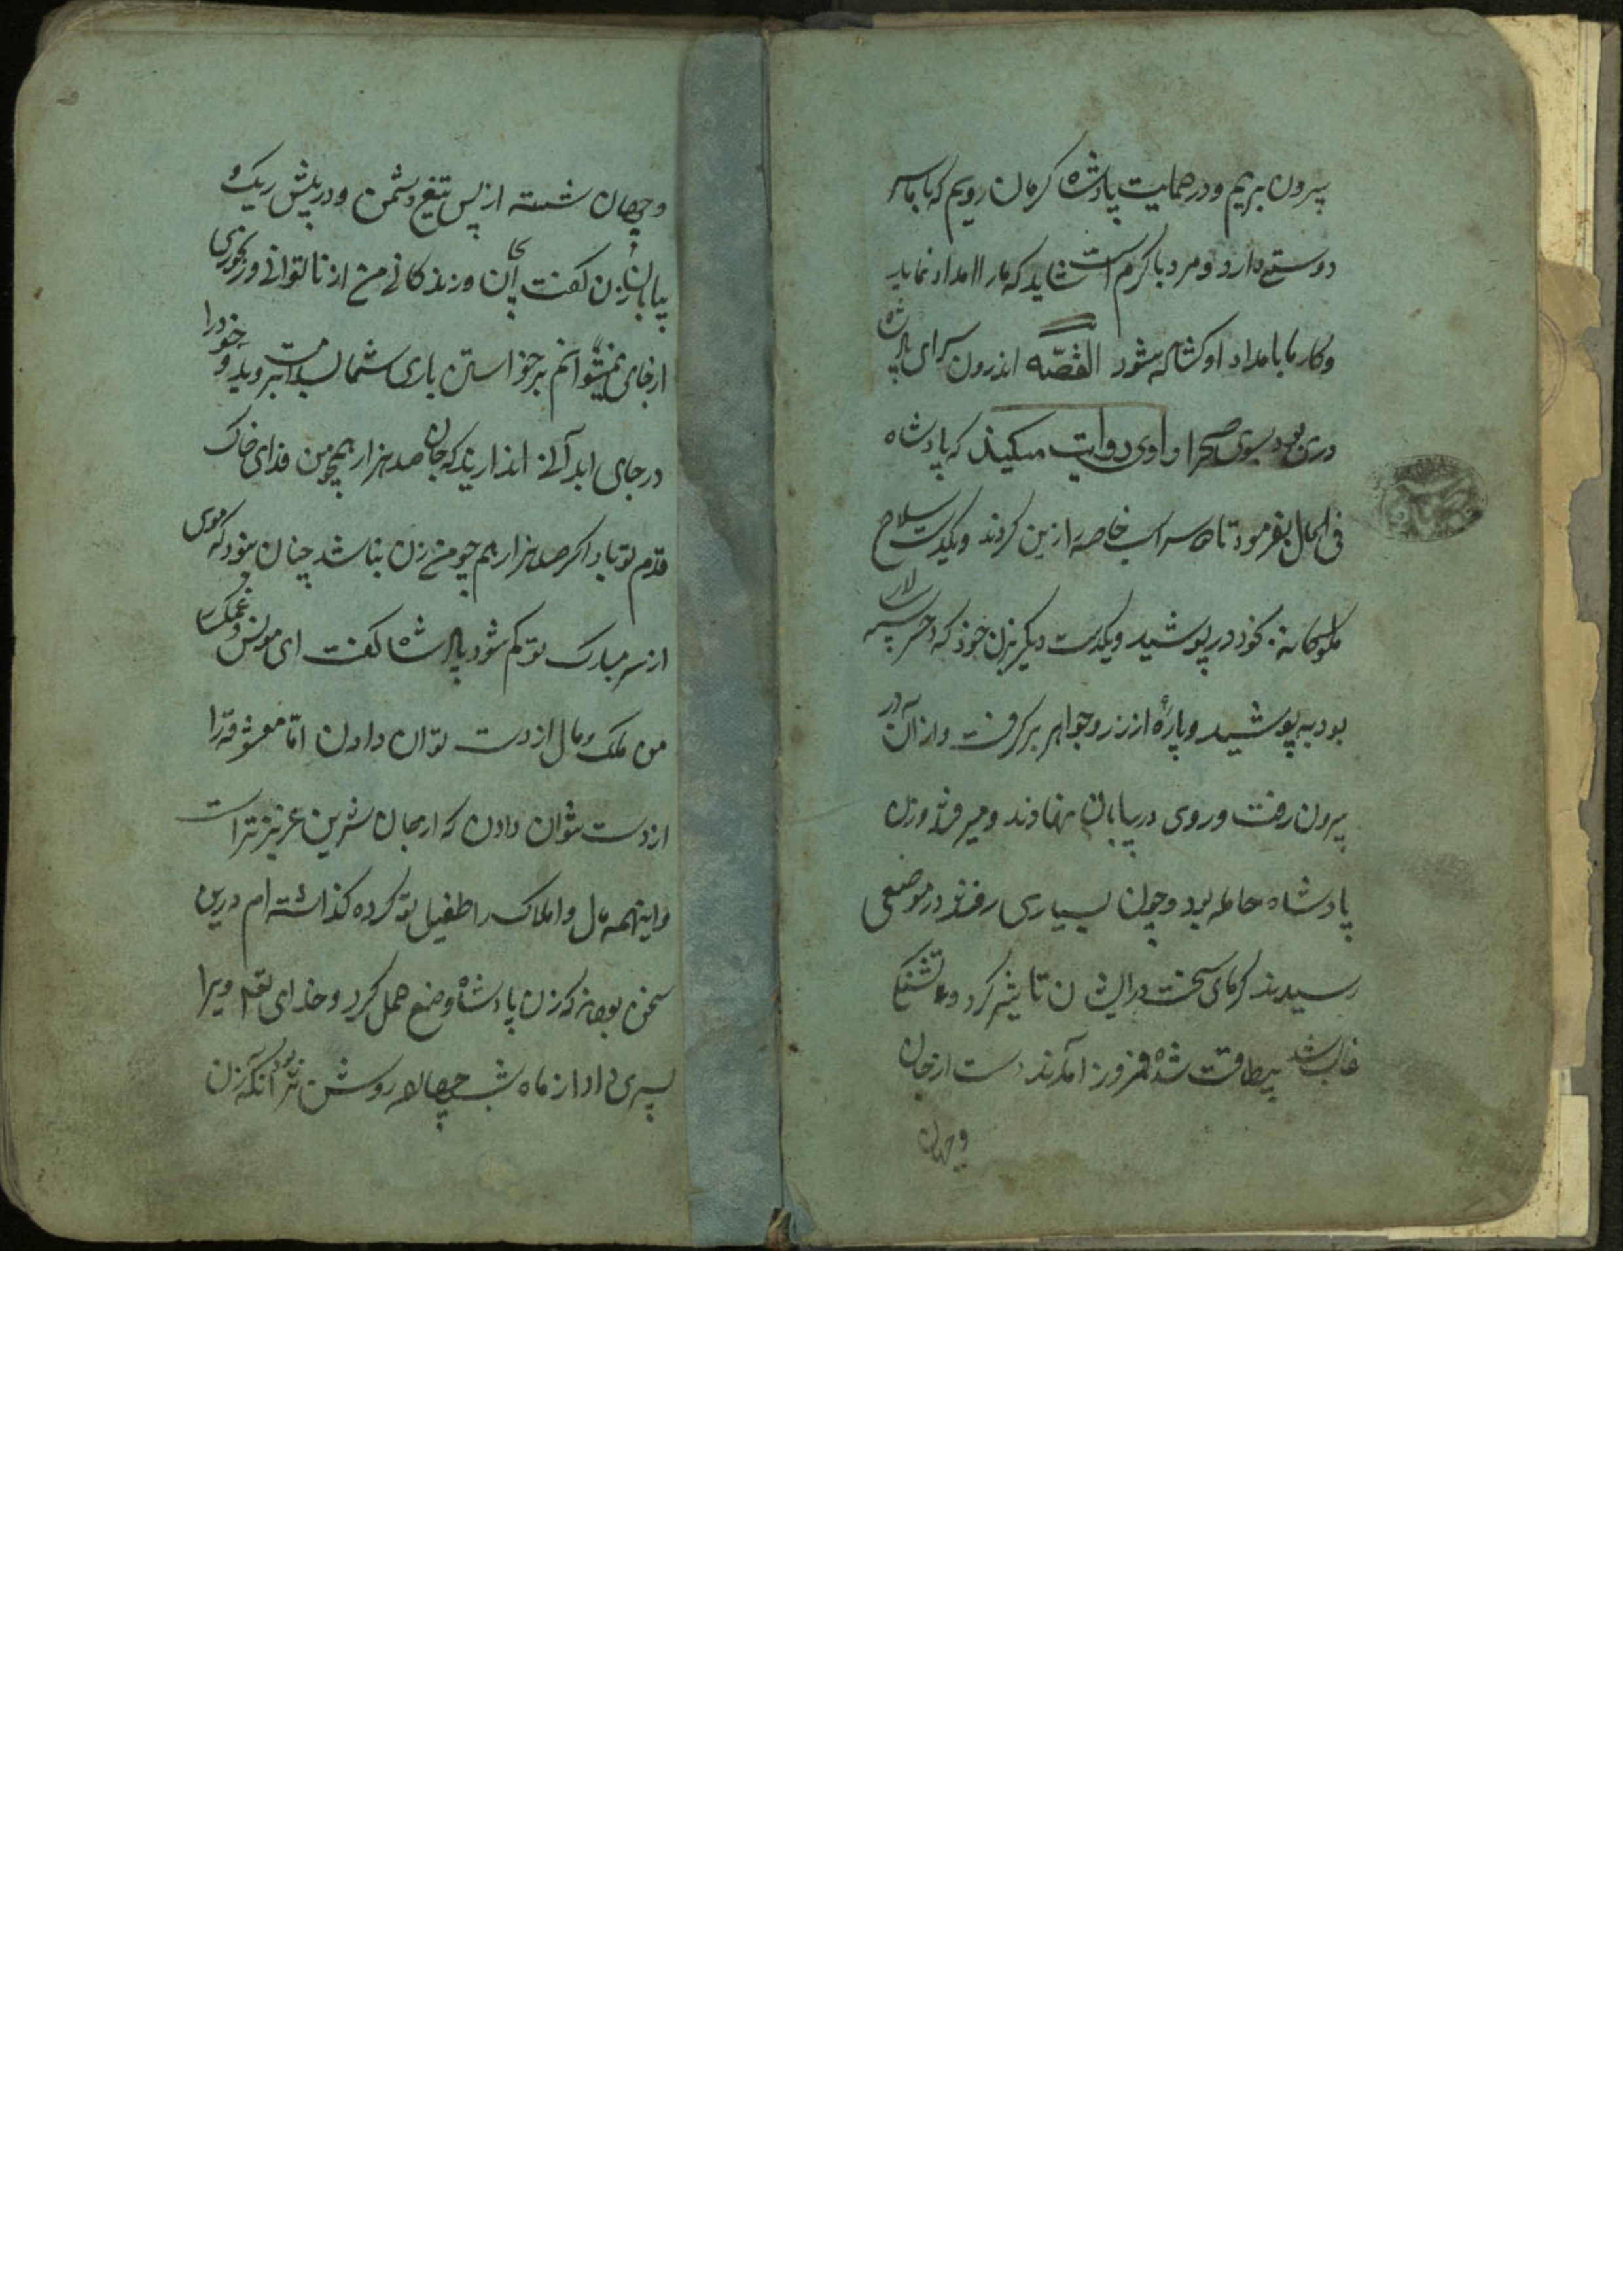 بیرون بریم و در حمایت پادشاه کرمان رویم که با ما سر
دوستی دارد و مرد با کرم است شاید که ما را امداد نماید
و کار ما بامداد او کشاده شود القصّه اندرون سرای پادشاه
دری بود بسوی صحرا راوی روایت میکند که پادشاه
فی الحال بفرمود تا دو سر اسب خاصه را زین کردند و یکدست سلاح
ملوکانه بخود در پوشید و یکدست دیگر بزن خود که دختر سپه سالار
بود به پوشید و پارهٔ از زر و جواهر بر گرفت و از آن در
بیرون رفت و روی در بیابان نهادند و میرفتند و زن
پادشاه حامله بود و چون بسیاری رفتند در موضعی
رسیدند کرمای سخت در ایشان تاثیر کرد و تشنکی
غالب شد بیطاقت شده فرود آمدند دست از جان
و جهان
و جهان شسته از پس تیغ دشمن و در پیش ریک و
بیابان زن کفت ای جان و زندکانی من از ناتوانی و رنجوری
از جای نمیتوانم برخواستن باری شما بسلامت بروید و خود را
در جای ابدآنی اندازید که جان صد هزار همچو من فدای خاک
قدم تو باد اکر صد هزار هم چو من زن نباشد چنان نبود که موی
از سر مبارک تو کم شود پادشاه کفت ای مونس و غمکسار
من ملک و مال از دست توان دادن امّا معشوقه را
از دست نتوان دادن که از جان شیرین عزیز تر است
و اینهمه مال و املاک را طفیل تو کرده کذاشته ام درین
سخن بودند که زن پادشاه وضع حمل کرد و خدای تعم ویرا
پسری داد از ماه شب چهارده روشن تر بود آنکه زن